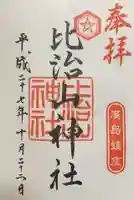 奉拝
廣島鎮座
比治山神社
比治山
神社
平成二十七年十月二十二日